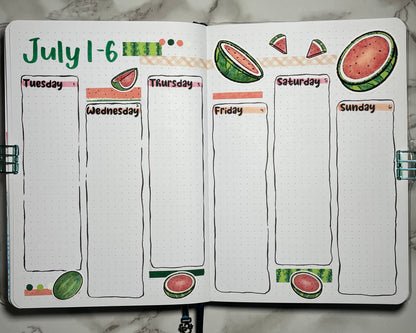 July 1-6
Tuesday
Wednesday
Thursday
Friday
Saturday 5
Sunday 6